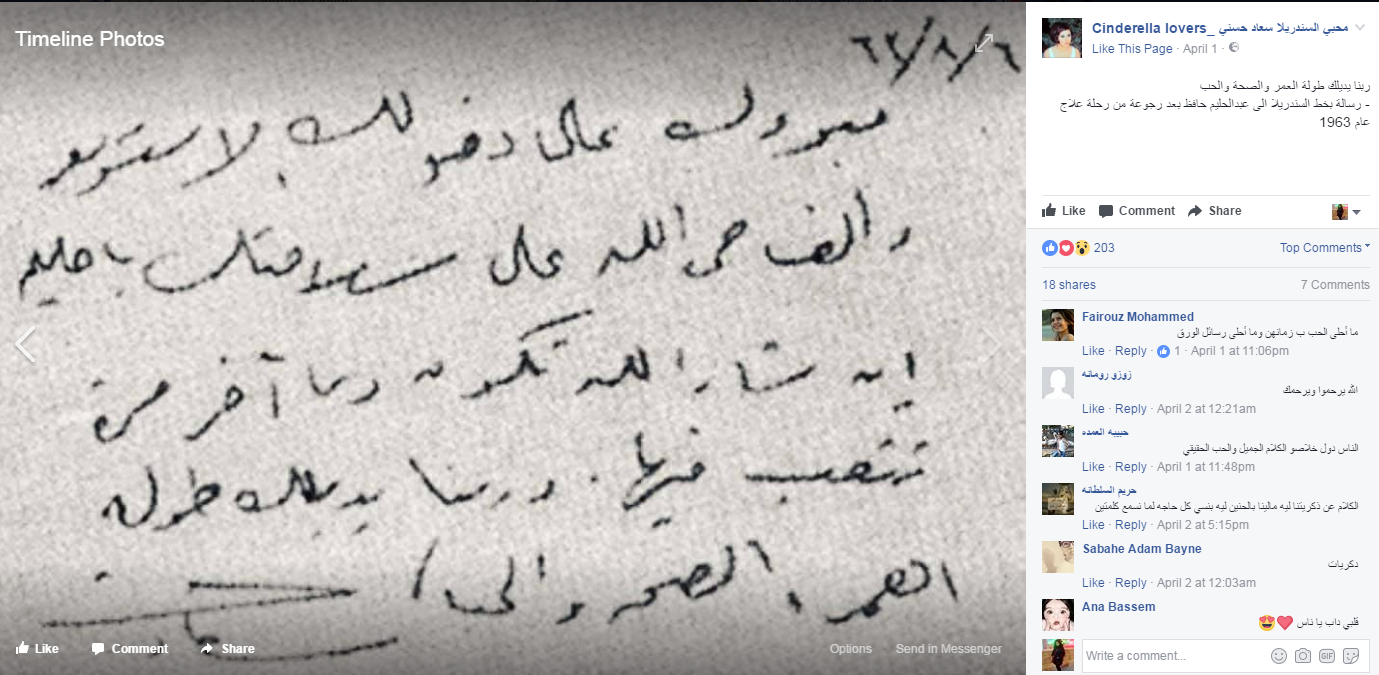 Timeline Photos
٦٣/٨/٦
مبروك على دخولك الاستوديو
والف حمد الله على سلامتك يا حليم
ان شاء الله تكون دى آخر مره
تتعب فيها. وربنا يديلك طولة
العمر والصحه والحب
Like Comment Share
Options Send in Messenger
Cinderella lovers_ محبي السندريلا سعاد حسني
Like This Page · April 1 ·
ربنا يديلك طولة العمر والصحة والحب
- رسالة بخط السندريلا الى عبدالحليم حافظ بعد رجوعة من رحلة علاج
عام 1963
Like Comment Share
203
Top Comments
18 shares
7 Comments
Fairouz Mohammed
ما أحلى الحب ب زمانهن وما أحلى رسائل الورق
Like · Reply · 1 · April 1 at 11:06pm
زوزو رومانه
الله يرحموا ويرحمك
Like · Reply · April 2 at 12:21am
حبيبه العمده
الناس دول خلاصو الكلام الجميل والحب الحقيقي
Like · Reply · April 1 at 11:48pm
حريم السلطانه
الكلام عن ذكريتنا ليه مالينا بالحنين ليه بنسي كل حاجه لما نسمع كلمتين
Like · Reply · April 2 at 5:15pm
Sabahe Adam Bayne
دكريات
Like · Reply · April 2 at 12:03am
Ana Bassem
قلبي داب يا ناس ❤😍
Write a comment...
GIF